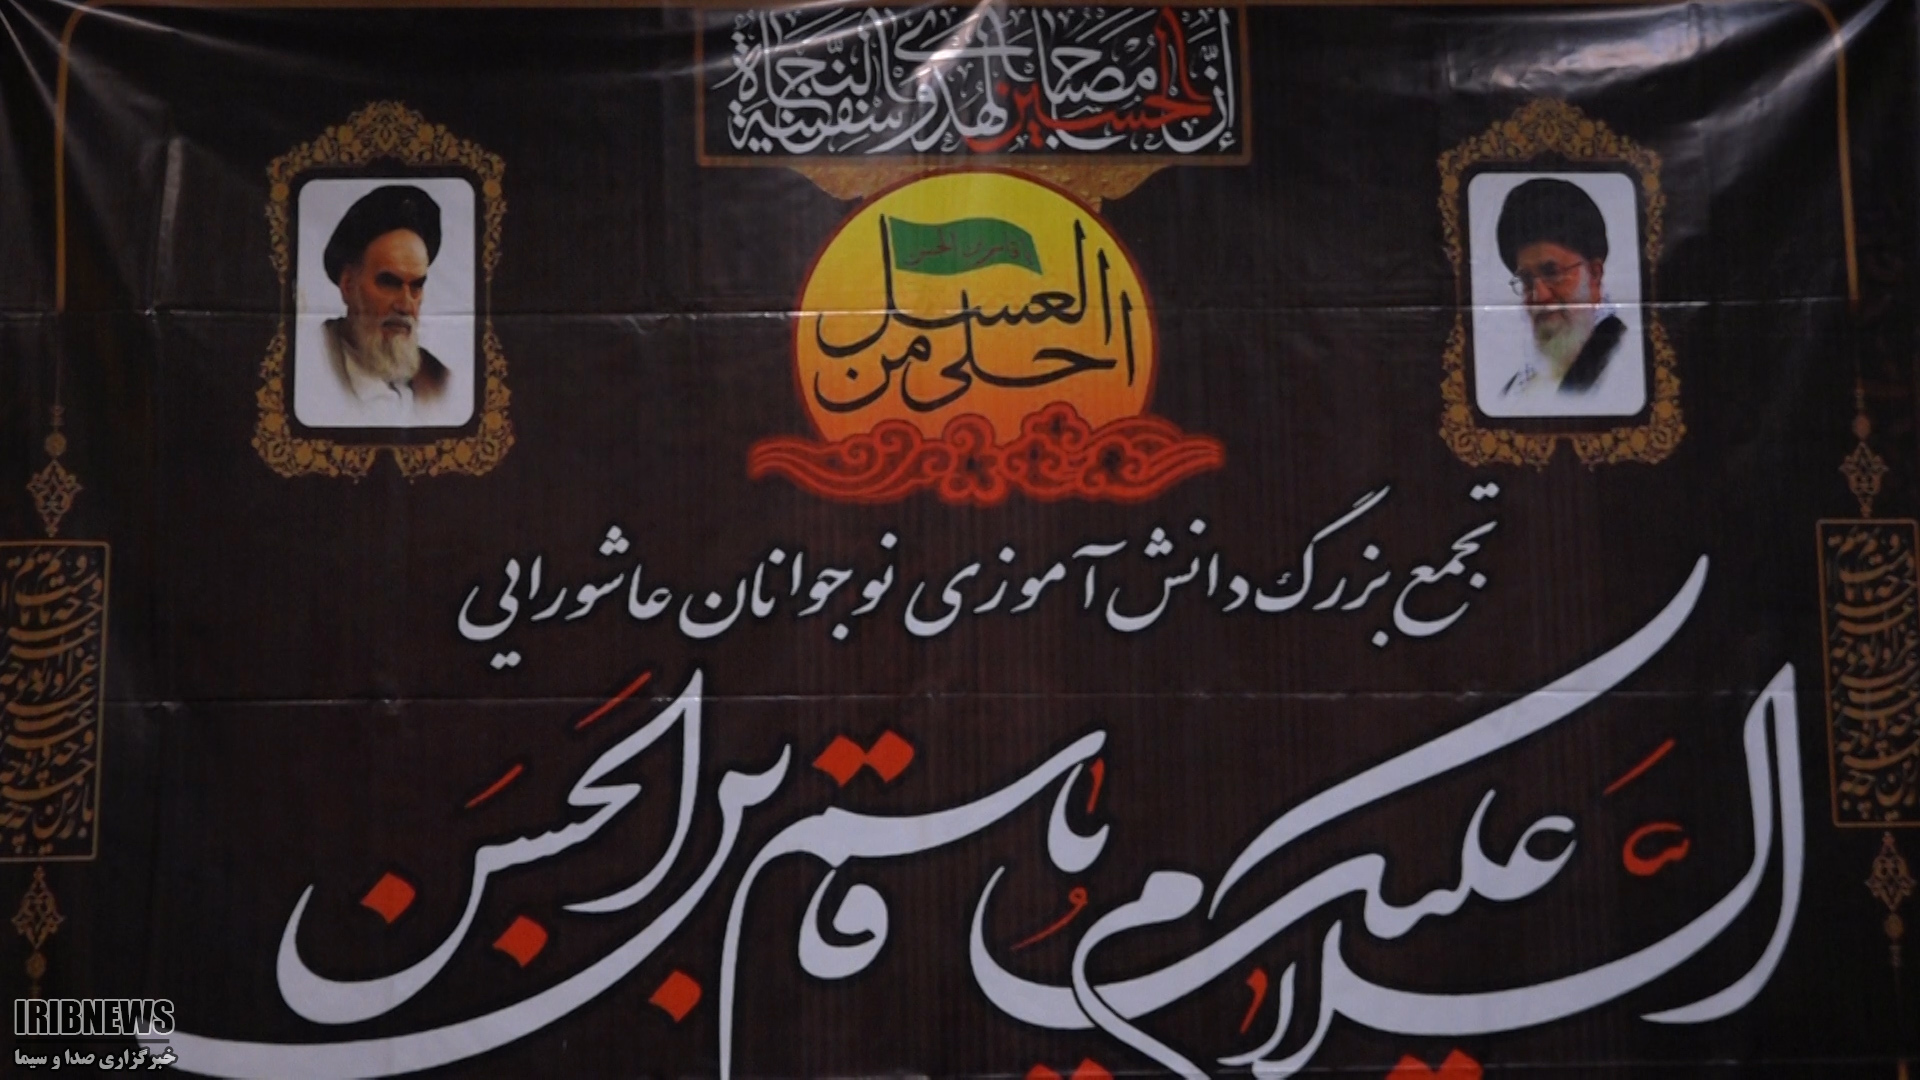 إنَّ الحُسین مصباحُ الهُدی و سفینة النَّجاة
احلی من العسل
تجمع بزرگ دانش آموزی نوجوانان عاشورایی
السَّلامُ علیک یا قاسم بن الحَسَن
IRIBNEWS
خبرگزاری صدا و سیما